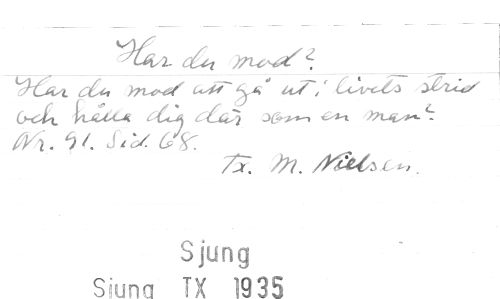 Har du mod?
Har du mod att gå ut i livets strid
och hålla dig där som en man?
Nr. 91. Sid. 68.
Tx. M. Nielsen.
Sjung
Sjung TX 1935